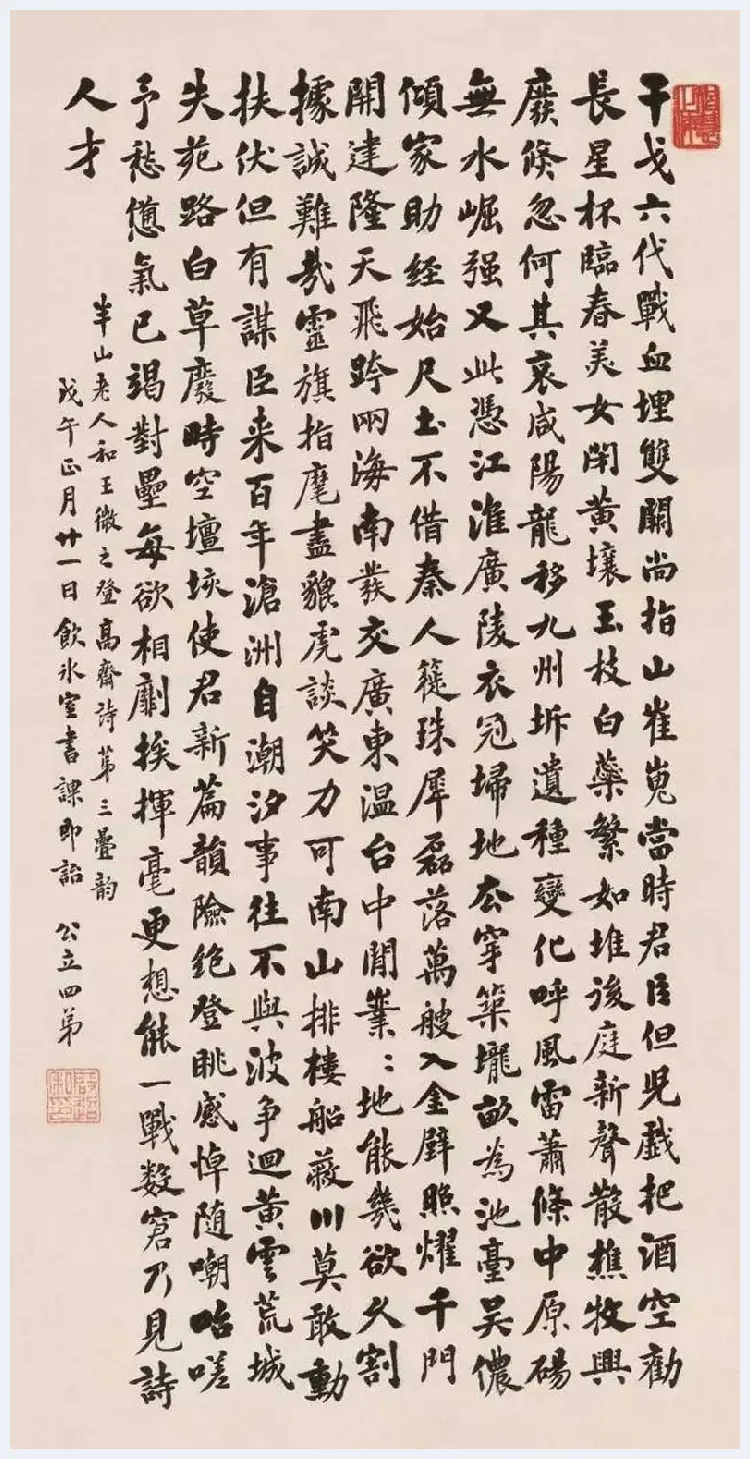 干戈六代戰血埋雙闕尚指山崔嵬當時君臣但兒戲把酒空勸
長星杯臨春美女閉黃壤玉枝白蘂繁如堆後庭新聲散樵牧興
廢倏忽何其哀咸陽龍移九州坼遺種變化呼風雷蕭條中原碭
無水崛强又此憑江淮廣陵衣冠埽地去穿築壠畝為池臺吴儂
傾家助經始尺土不借秦人簁珠犀磊落萬艘入金璧照耀千門
開建隆天飛跨兩海南發交廣東温台中間業〻地能幾欲久割
據誠難哉靈旗指麾盡貔虎談笑力可南山排樓船蔽川莫敢動
扶伏但有謀臣来百年滄洲自潮汐事往不與波争迴黄雲荒城
失苑路白草廢畤空壇垓使君新篇韻險絶登眺感悼随嘲咍嗟
予愁憊氣已竭對壘每欲相劘挨揮毫更想能一戰数窘乃見詩
人才
半山老人和王微之登高齋詩第三疊韵
戊午正月廿一日飲冰室書課即詒
公立四弟